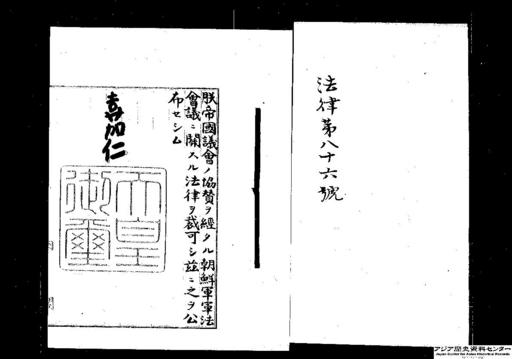 法律第八十六號
朕帝國議會ノ協賛ヲ經タル朝鮮軍軍法
會議ニ關スル法律ヲ裁可シ茲ニ之ヲ公
布セシム
嘉仁
天皇
御璽
アジア歴史資料センター
Japan Center for Asian Historical Records